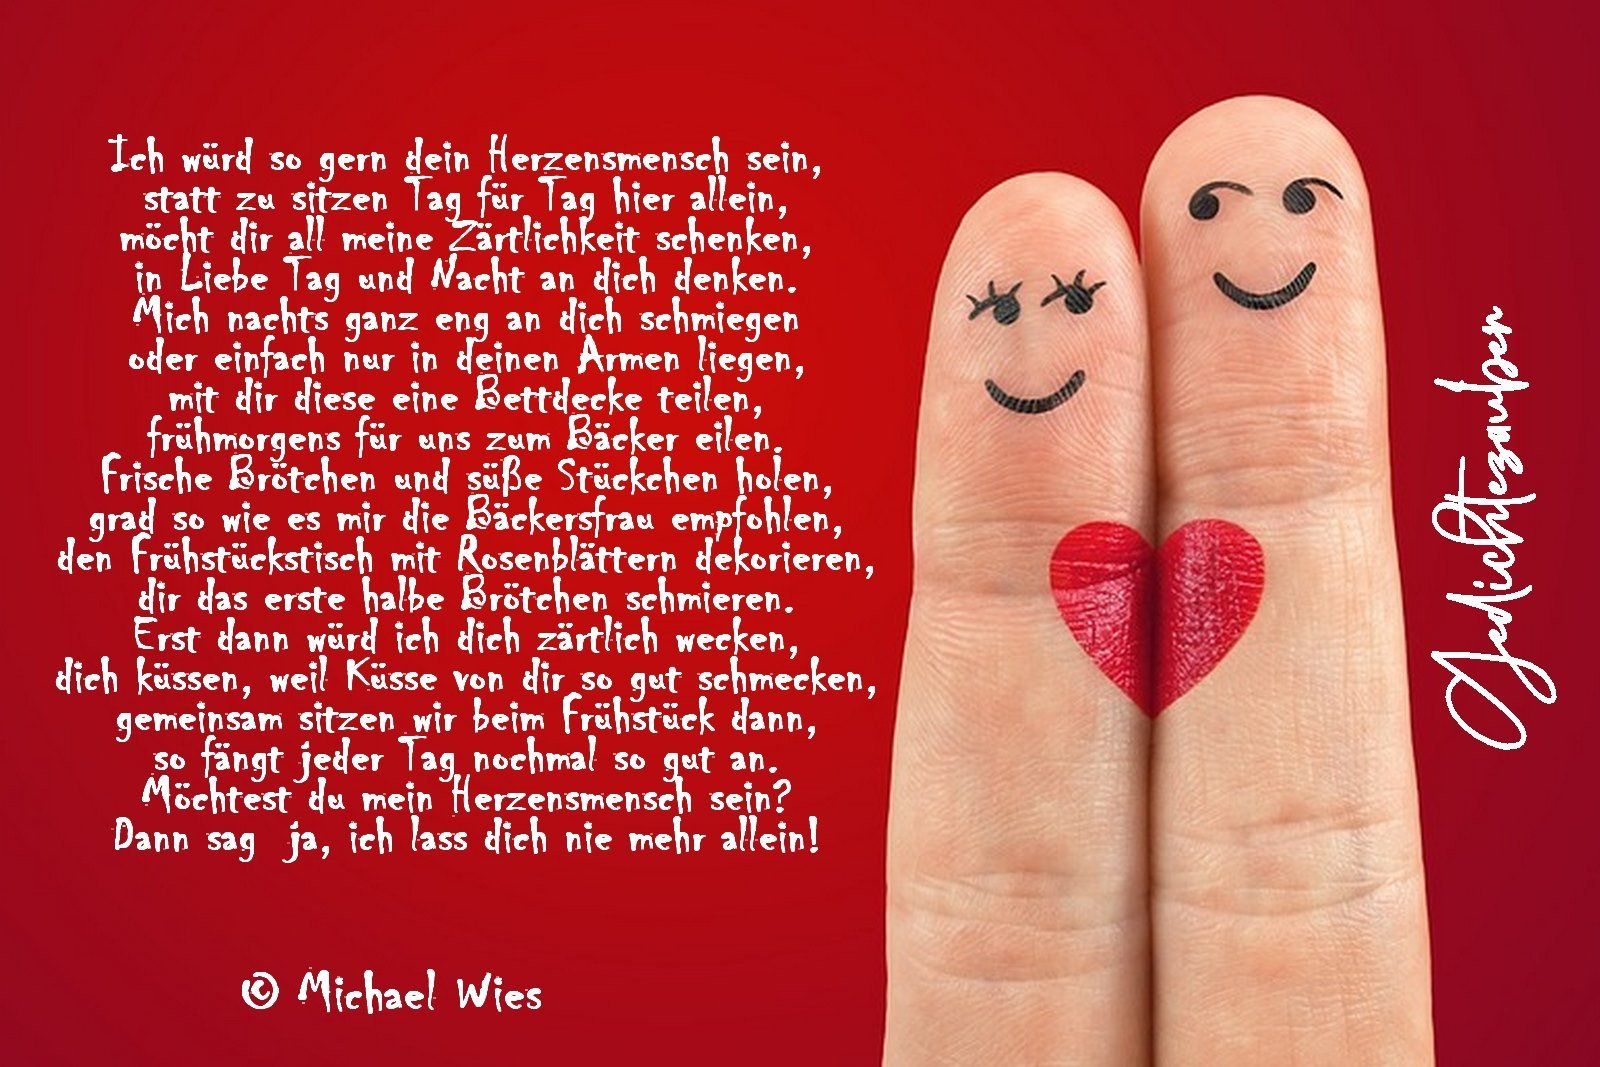 Ich würd so gern dein Herzensmensch sein,
statt zu sitzen Tag für Tag hier allein,
möcht dir all meine Zärtlichkeit schenken,
in Liebe Tag und Nacht an dich denken.
Mich nachts ganz eng an dich schmiegen
oder einfach nur in deinen Armen liegen,
mit dir diese eine Bettdecke teilen,
frühmorgens für uns zum Bäcker eilen.
Frische Brötchen und süße Stückchen holen,
grad so wie es mir die Bäckersfrau empfohlen,
den Frühstückstisch mit Rosenblättern dekorieren,
dir das erste halbe Brötchen schmieren.
Erst dann würd ich dich zärtlich wecken,
dich küssen, weil Küsse von dir so gut schmecken,
gemeinsam sitzen wir beim Frühstück dann,
so fängt jeder Tag nochmal so gut an.
Möchtest du mein Herzensmensch sein?
Dann sag ja, ich lass dich nie mehr allein!
© Michael Wies
Gedichtezauber